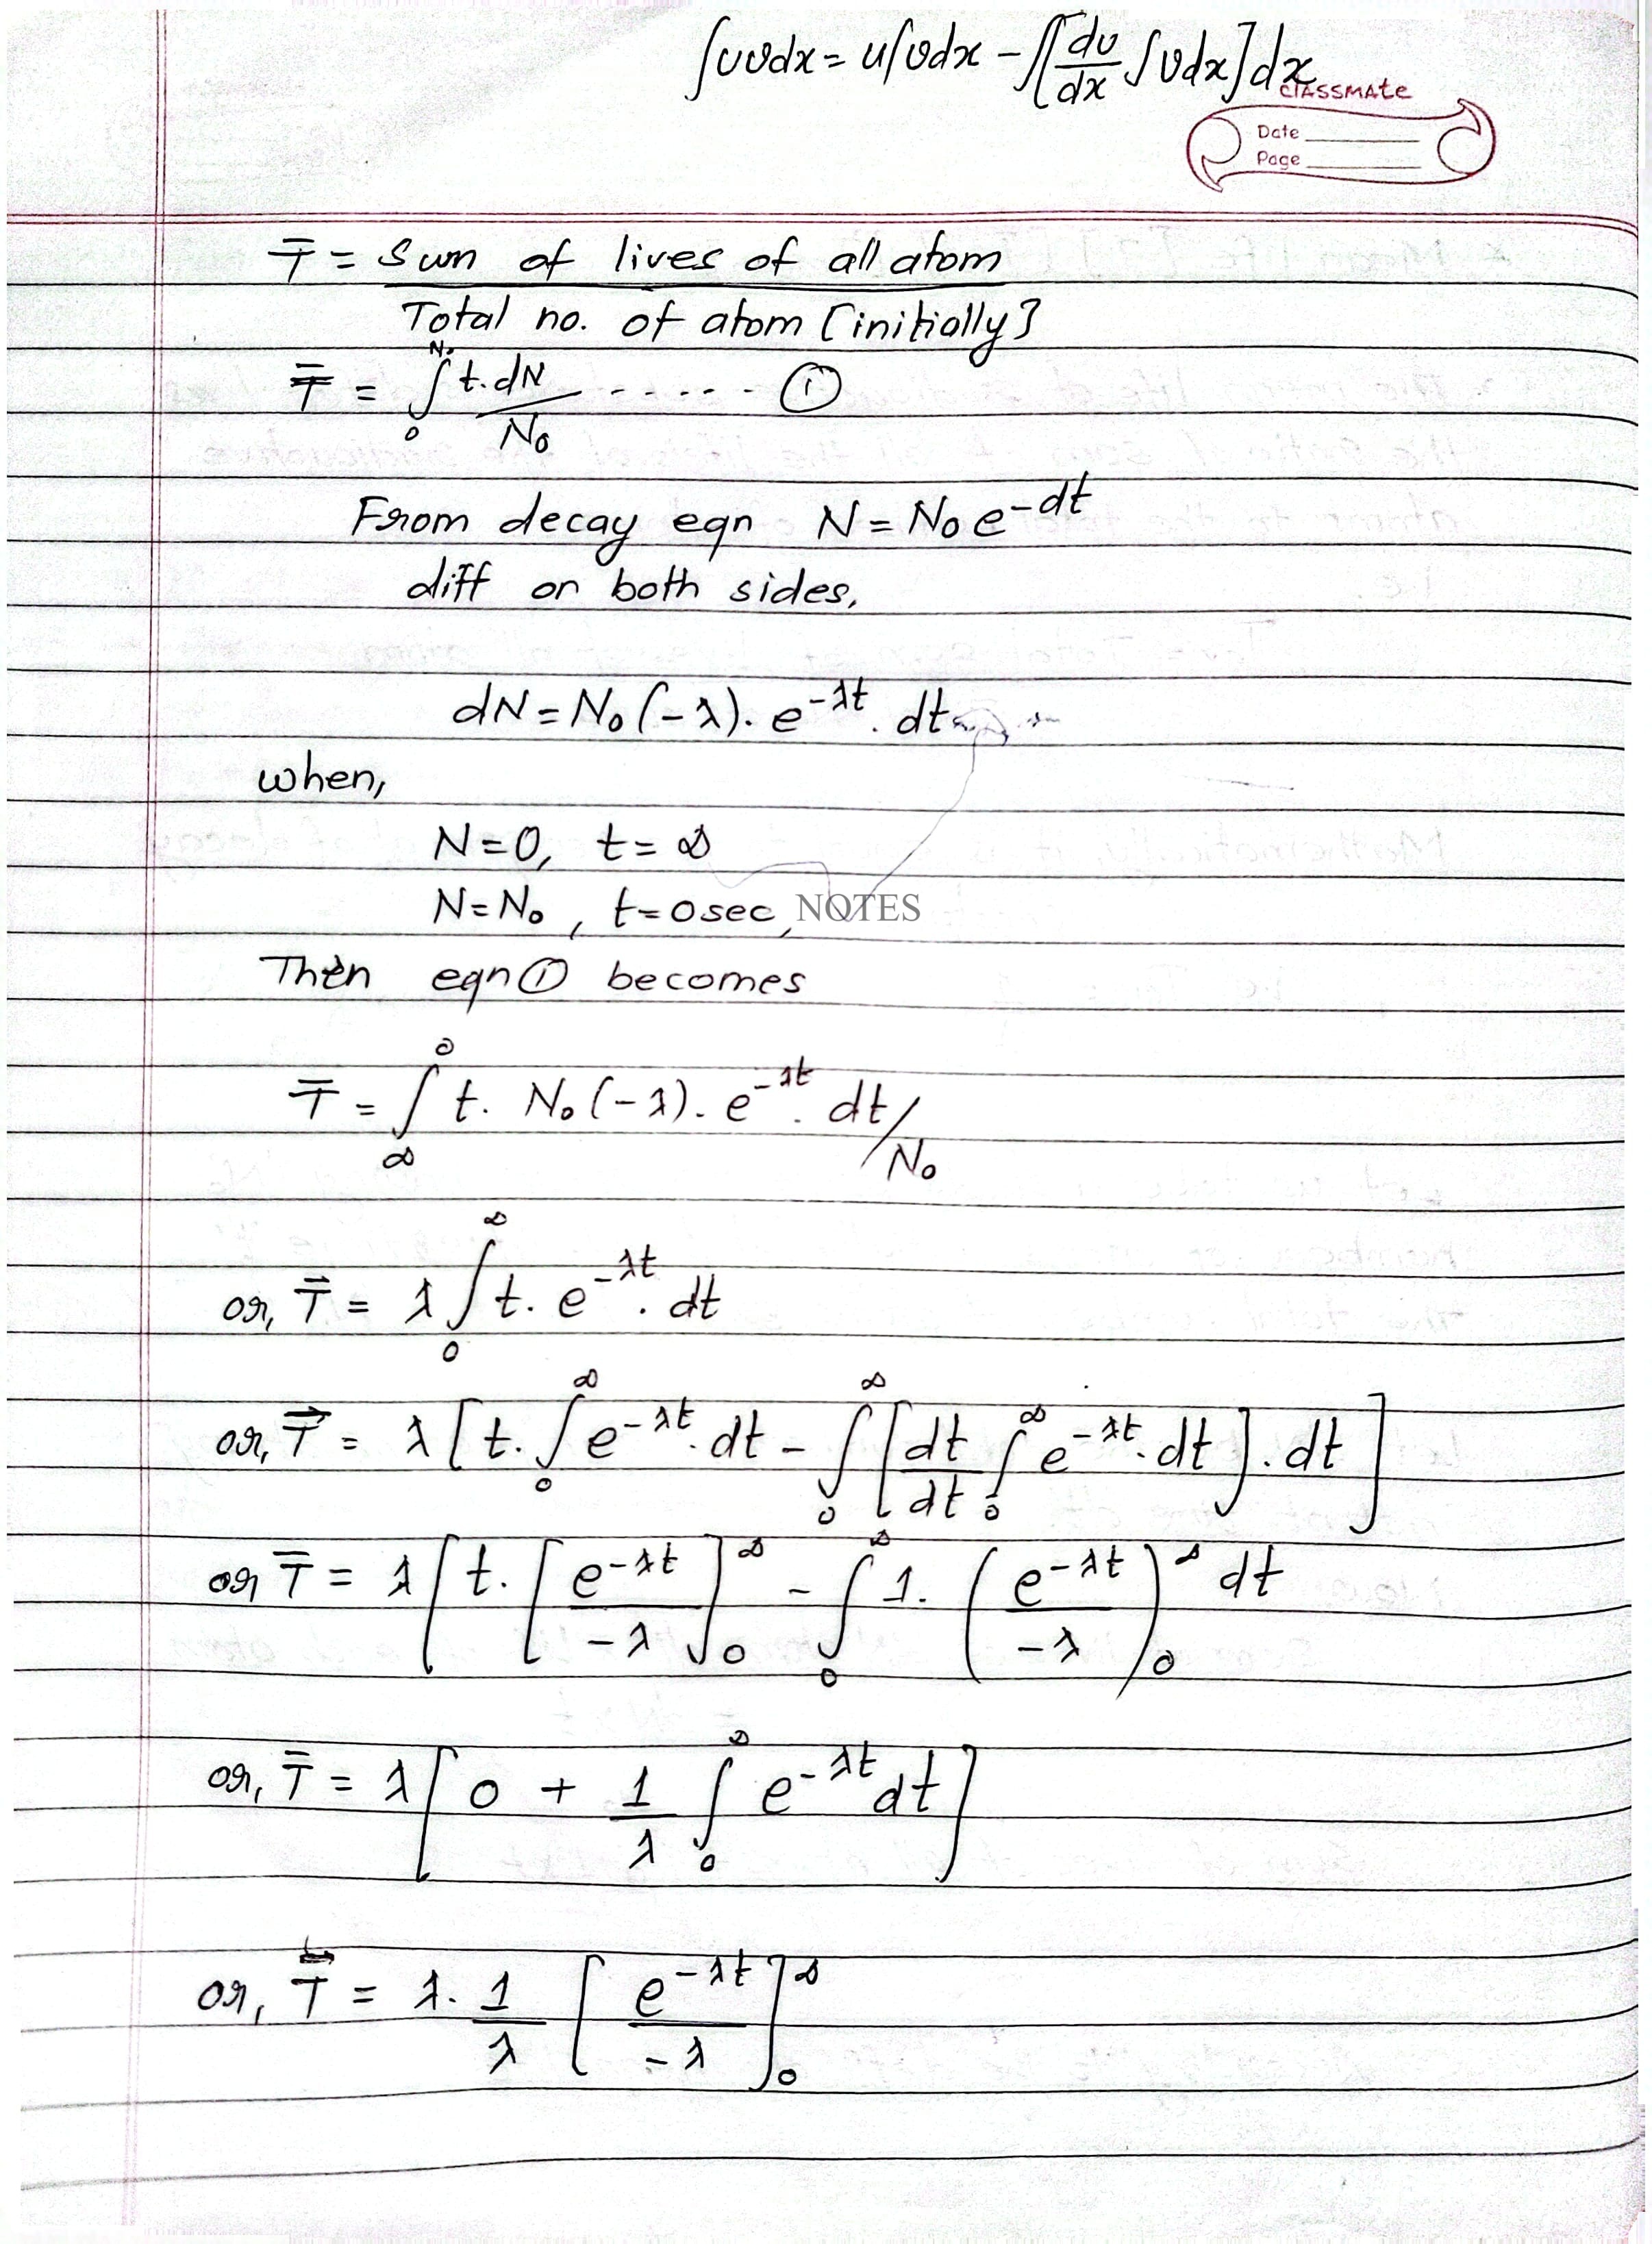 ∫uvdx = u∫vdx - ∫[du/dx ∫vdx]dx
classmate
Date
Page
T̄ = Sum of lives of all atom
Total no. of atom [initially]
T̄ = ∫₀^N₀ t.dN/N₀ ...... ①
From decay eqn N = N₀ e^-dt
diff on both sides,
dN = N₀(-λ). e^-λt . dt
when,
N=0, t=∞
N=N₀, t=0sec, NOTES
Then eqn① becomes
T̄ = ∫_∞^0 t. N₀(-λ). e^-λt . dt/N₀
or, T̄ = λ ∫₀^∞ t. e^-λt . dt
or, T̄ = λ [t. ∫₀^∞ e^-λt . dt - ∫₀^∞ [dt/dt ∫₀^∞ e^-λt . dt] . dt]
or T̄ = λ [t. [e^-λt/-λ]₀^∞ - ∫₀^∞ 1. (e^-λt/-λ)₀^∞ dt
or, T̄ = λ [0 + 1/λ ∫₀^∞ e^-λt dt]
or, T̄ = λ. 1/λ [e^-λt/-λ]₀^∞